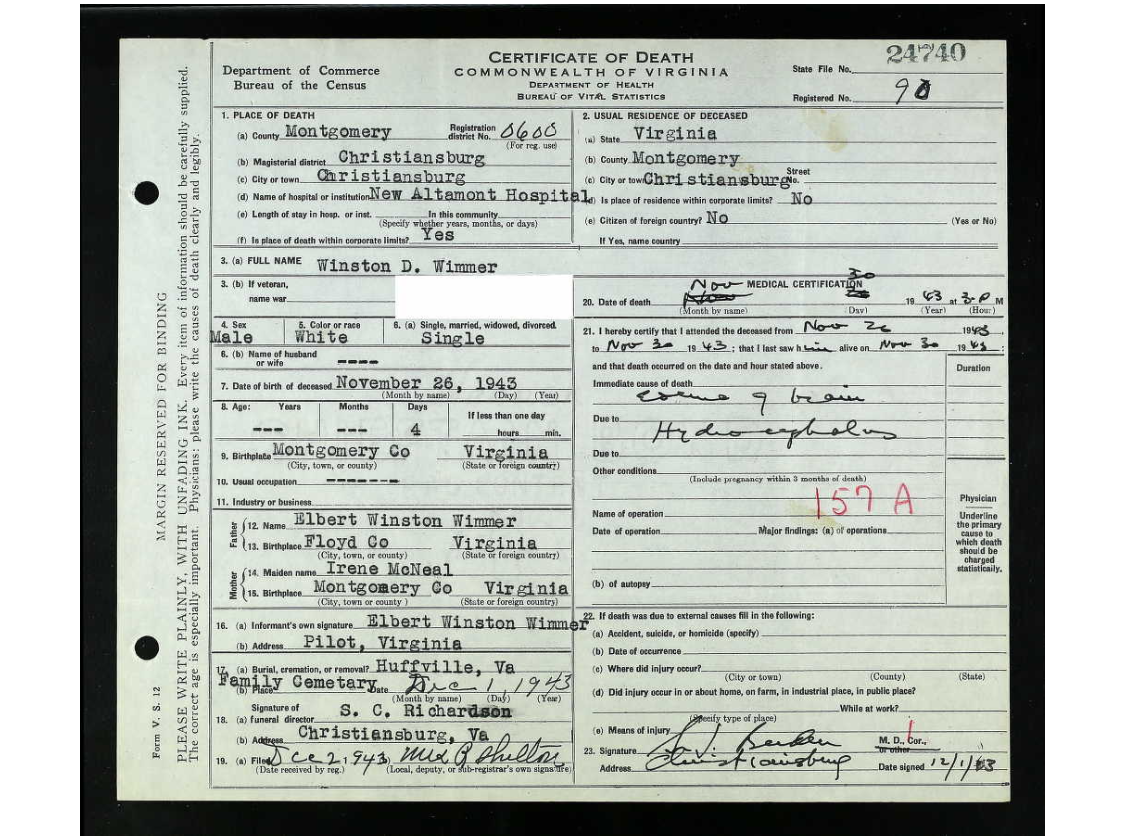 CERTIFICATE OF DEATH
COMMONWEALTH OF VIRGINIA
DEPARTMENT OF HEALTH
BUREAU OF VITAL STATISTICS
Department of Commerce
Bureau of the Census
24740
State File No.
Registered No. 90
MARGIN RESERVED FOR BINDING
PLEASE WRITE PLAINLY, WITH UNFADING INK. Every item of information should be carefully supplied.
The correct age is especially important. Physicians: please write the causes of death clearly and legibly.
Form V. S. 12
1. PLACE OF DEATH
(a) County Montgomery Registration district No. 0600
(For reg. use)
(b) Magisterial district Christiansburg
(c) City or town Christiansburg
(d) Name of hospital or institution New Altamont Hospital
(e) Length of stay in hosp. or inst. In this community
(Specify whether years, months, or days)
(f) Is place of death within corporate limits? Yes
2. USUAL RESIDENCE OF DECEASED
(a) State Virginia
(b) County Montgomery
(c) City or town Christiansburg Street No.
(d) Is place of residence within corporate limits? No
(e) Citizen of foreign country? No (Yes or No)
If Yes, name country
3. (a) FULL NAME Winston D. Wimmer
3. (b) If veteran,
name war
4. Sex 5. Color or race 6. (a) Single, married, widowed, divorced
Male White Single
6. (b) Name of husband or wife ----
7. Date of birth of deceased November 26, 1943
(Month by name) (Day) (Year)
8. Age: Years Months Days If less than one day
--- --- 4 hours min.
9. Birthplace Montgomery Co Virginia
(City, town, or county) (State or foreign country)
10. Usual occupation -------
11. Industry or business
Father
12. Name Elbert Winston Wimmer
13. Birthplace Floyd Co Virginia
(City, town, or county) (State or foreign country)
Mother
14. Maiden name Irene McNeal
15. Birthplace Montgomery Co Virginia
(City, town or county) (State or foreign country)
16. (a) Informant's own signature Elbert Winston Wimmer
(b) Address Pilot, Virginia
17. (a) Burial, cremation, or removal? Huffville, Va
(b) Place Family Cemetary Date Dec 1, 1943
(Month by name) (Day) (Year)
18. Signature of (a) funeral director S. C. Richardson
(b) Address Christiansburg, Va
19. (a) Filed Dec 2, 1943, Mrs P Shelton
(Date received by reg.) (Local, deputy, or sub-registrar's own signature)
MEDICAL CERTIFICATION
20. Date of death Nov 30 1943 at 3-P M
(Month by name) (Day) (Year) (Hour)
21. I hereby certify that I attended the deceased from Nov 26 1943
to Nov 30 1943; that I last saw him alive on Nov 30 1943;
and that death occurred on the date and hour stated above.
Duration
Immediate cause of death
of brain
Due to Hydrocephalus
Due to
Other conditions
(Include pregnancy within 3 months of death)
157 A
Name of operation
Date of operation Major findings: (a) of operations
(b) of autopsy
Physician
Underline the primary cause to which death should be charged statistically.
22. If death was due to external causes fill in the following:
(a) Accident, suicide, or homicide (specify)
(b) Date of occurrence
(c) Where did injury occur?
(City or town) (County) (State)
(d) Did injury occur in or about home, on farm, in industrial place, in public place?
While at work?
(Specify type of place)
(e) Means of injury
23. Signature M. D., Cor., or other
Address Christiansburg Date signed 12/1/43